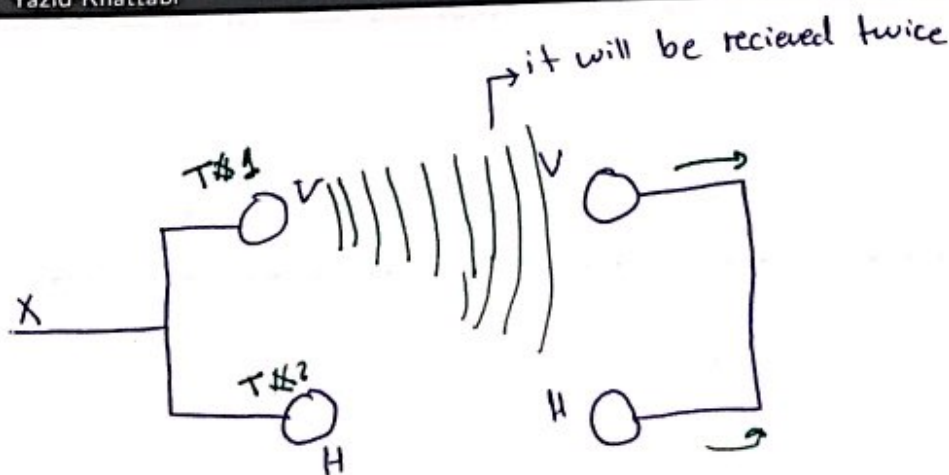 Yazid Khattabi
it will be recieved twice
T#1
V
V
X
T#2
H
H